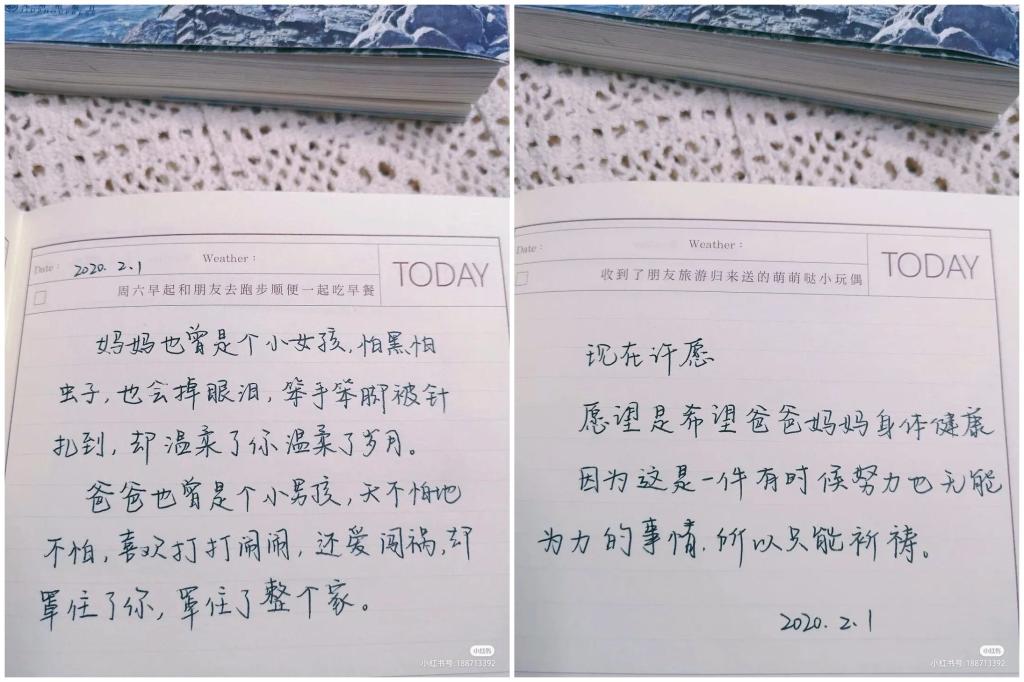 Date: 2020.2.1
Weather:
TODAY
周六早起和朋友去跑步顺便一起吃早餐
妈妈也曾是个小女孩,怕黑怕
虫子,也会掉眼泪,笨手笨脚被针
扎到,却温柔了你温柔了岁月。
爸爸也曾是个小男孩,天不怕地
不怕,喜欢打打闹闹,还爱闯祸,却
罩住了你,罩住了整个家。
小红书
小红书号:188713392
Date:
Weather:
TODAY
收到了朋友旅游归来送的萌萌哒小玩偶
现在许愿
愿望是希望爸爸妈妈身体健康
因为这是一件有时候努力也无能
为力的事情.所以只能祈祷。
2020.2.1
小红书
小红书号:188713392